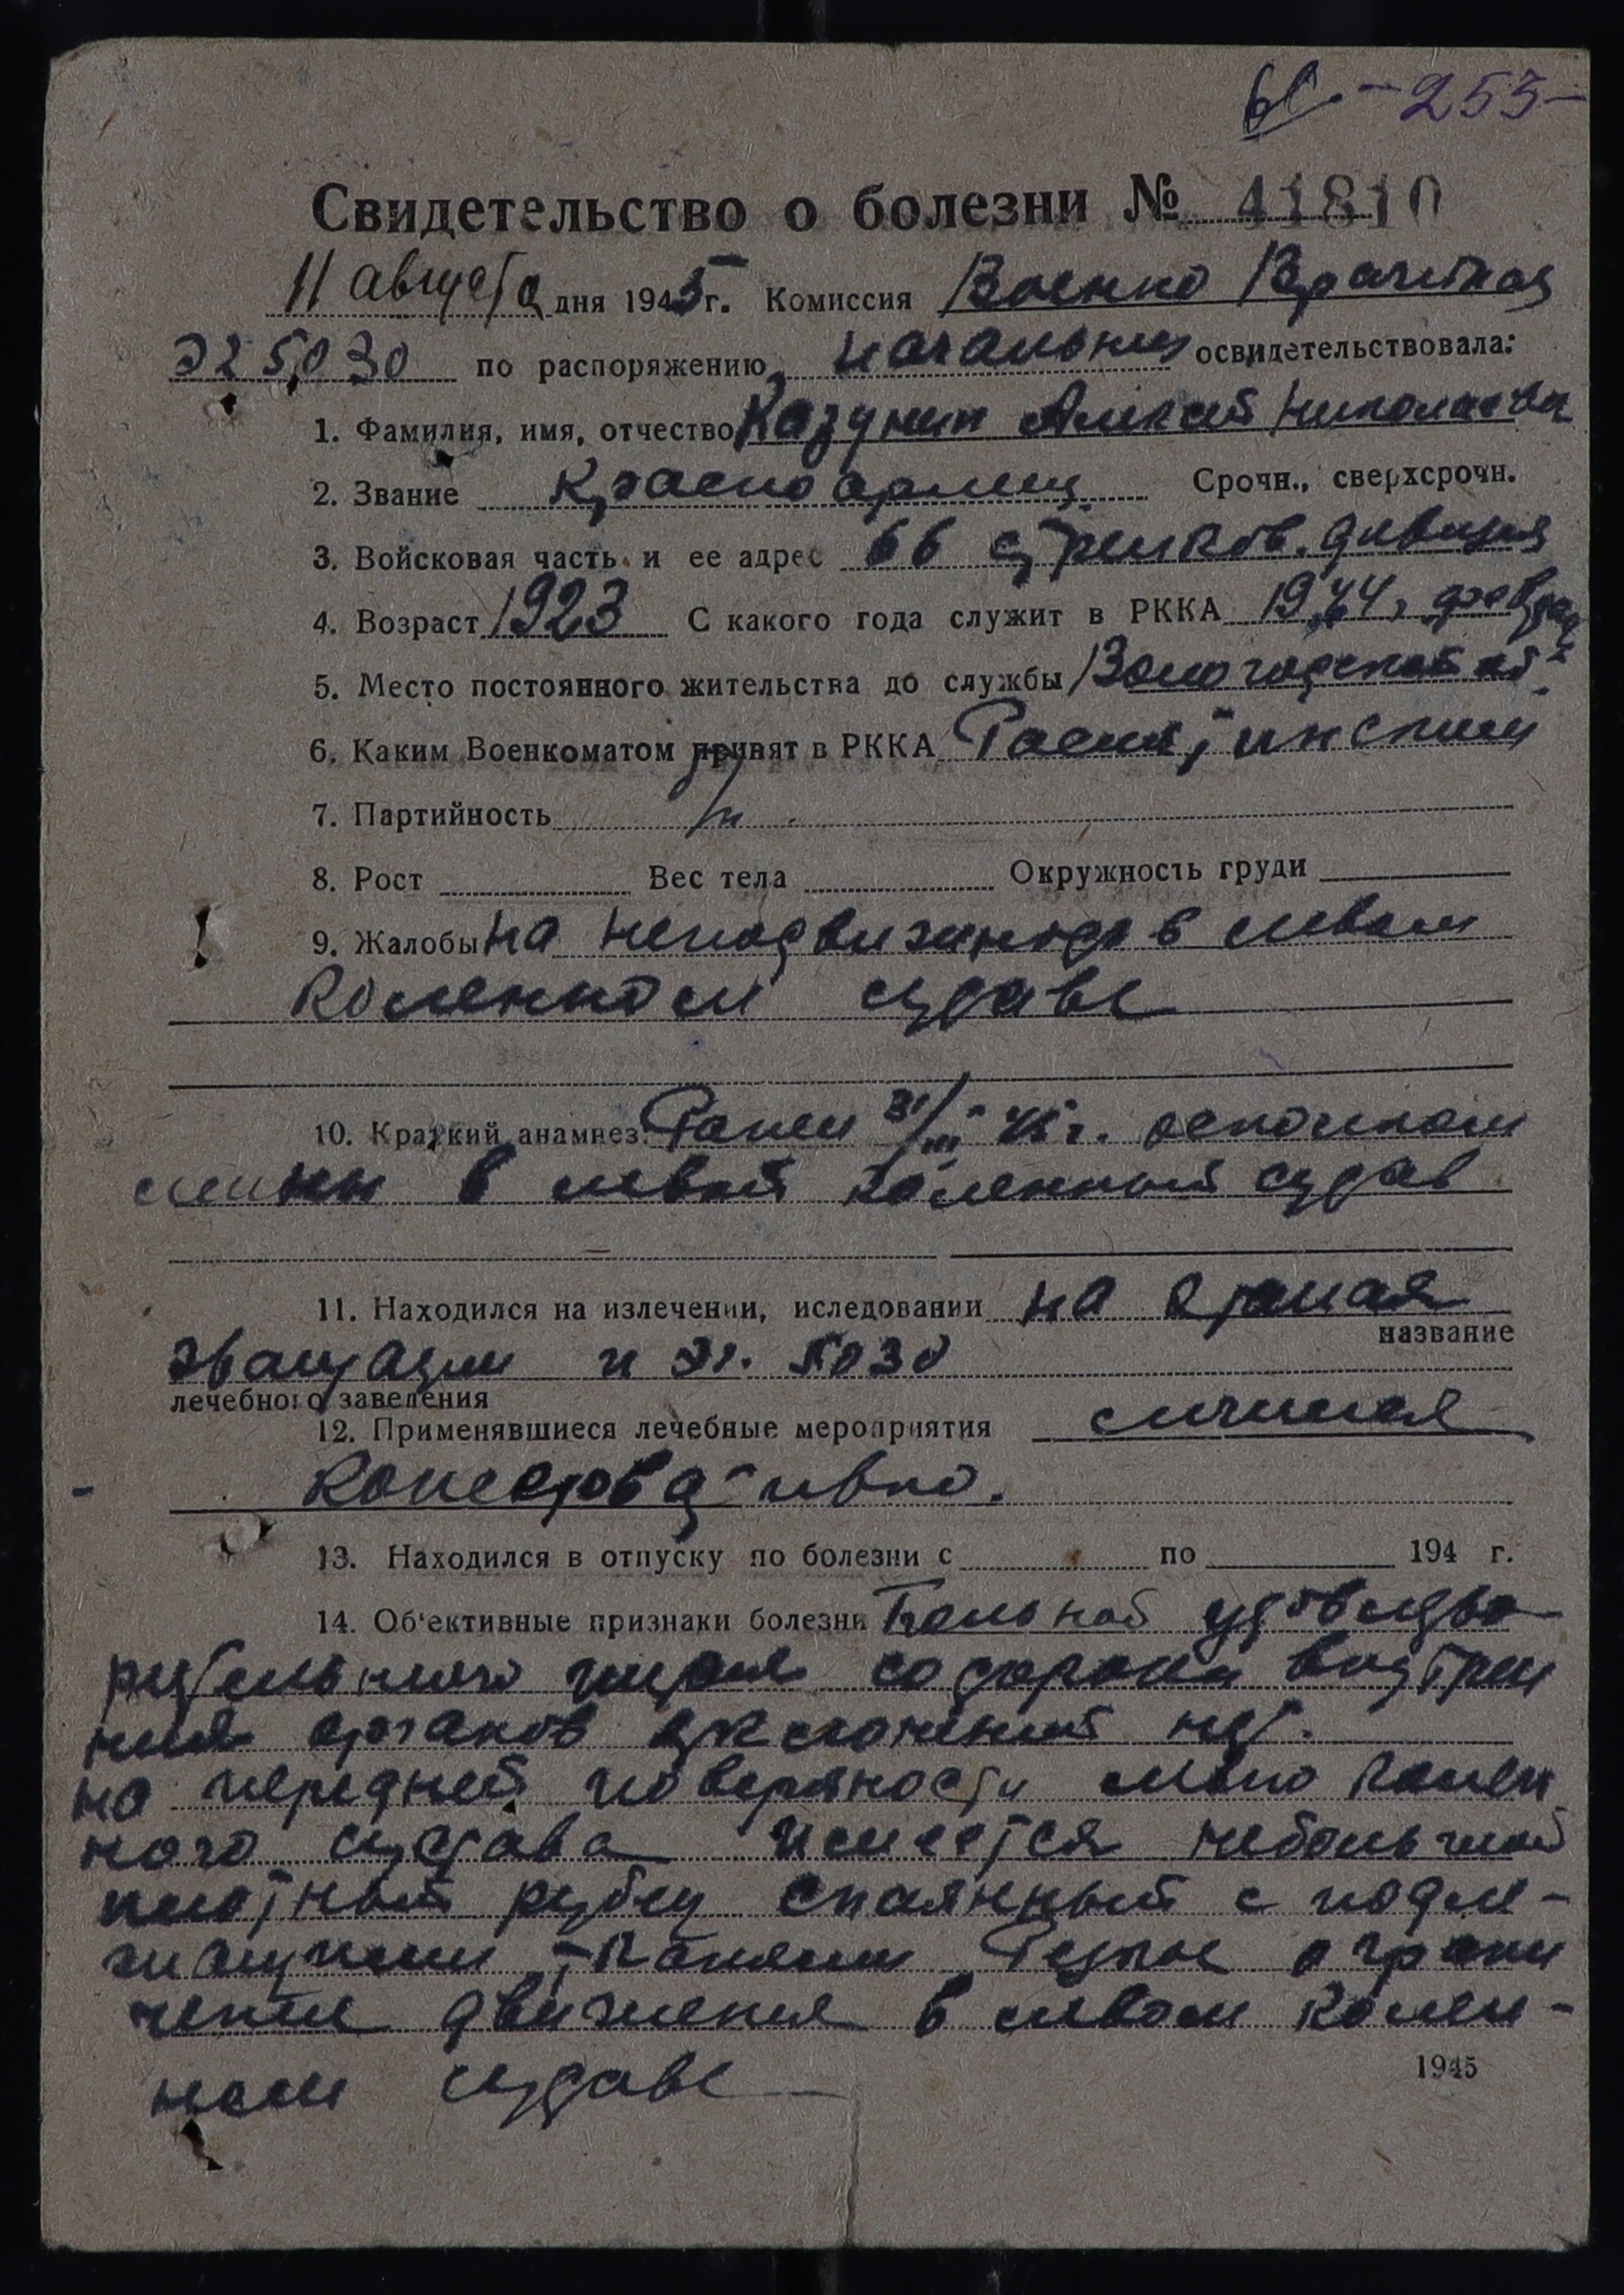 -253-
Свидетельство о болезни № 41810
11 августа дня 1945 г. Комиссия Военно Врачебная
ЭГ 5030 по распоряжению начальника освидетельствовала:
1. Фамилия, имя, отчество Казунин Алексей Николаевич
2. Звание Красноармеец Срочн., сверхсрочн.
3. Войсковая часть и ее адрес 66 стрелков. дивизия
4. Возраст 1923 С какого года служит в РККА 1944, февраль
5. Место постоянного жительства до службы Вологодской об.
6. Каким Военкоматом привят в РККА
7. Партийность
8. Рост Вес тела Окружность груди
9. Жалобы на неподвижность в левом
коленном суставе
10. Краткий анамнез: Ранен 31/III-45 г. осколком
мины в левый коленный сустав
11. Находился на излечении, иследовании на этапах
название
эвакуации и ЭГ. 5030
лечебного заведения
12. Применявшиеся лечебные мероприятия лечился
Консервативно.
13. Находился в отпуску по болезни с по 194 г.
14. Об'ективные признаки болезни Больной удовлетво-
рительного питания со стороны внутрен
них органов отклонений нет.
на передней поверхности лево колен
ного сустава имеется небольшой
плотный рубец спаянный с подле-
жащими тканями Резкое ограни
чение движения в левом колен-
ном суставе
1945